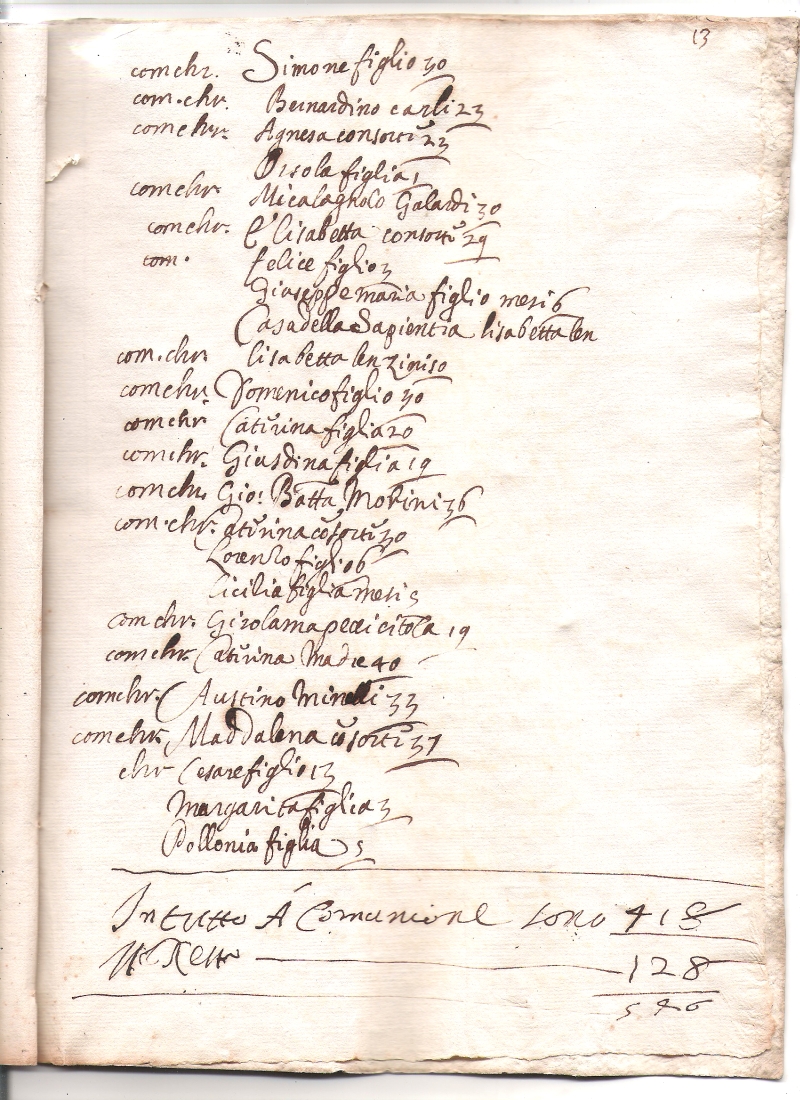 13
com chr. Simone figlio 30
com. chr. Bernardino Carli 23
com chr. Agnesa consorte 23
Orsola figlia 1
com chr. Micalagnolo Galardi 30
com chr. Elisabetta consorte 29
com. felice figlio 3
Giuseppe maria figlio mesi 6
Casa della Sapientia lisabetta len
com. chr. lisabetta lenzini 50
com chr. Domenico figlio 30
com chr Caterina figlia 20
com chr. Giusdina figlia 19
com chr. Gio: Batta Morini 36
com. chr. Caterina cosorte 30
Lorenzo figlio 6
Cicilia figlia mesi 5
com chr. Girolama 19
com chr. Caterina Madre 40
com chr. Austino Minelli 33
com chr. Maddalena cosorte 37
chr Cesare figlio 13
Margarita figlia 3
Pollonia figlia 5
In tutto A Comunione sono 418
Il Resto 128
546